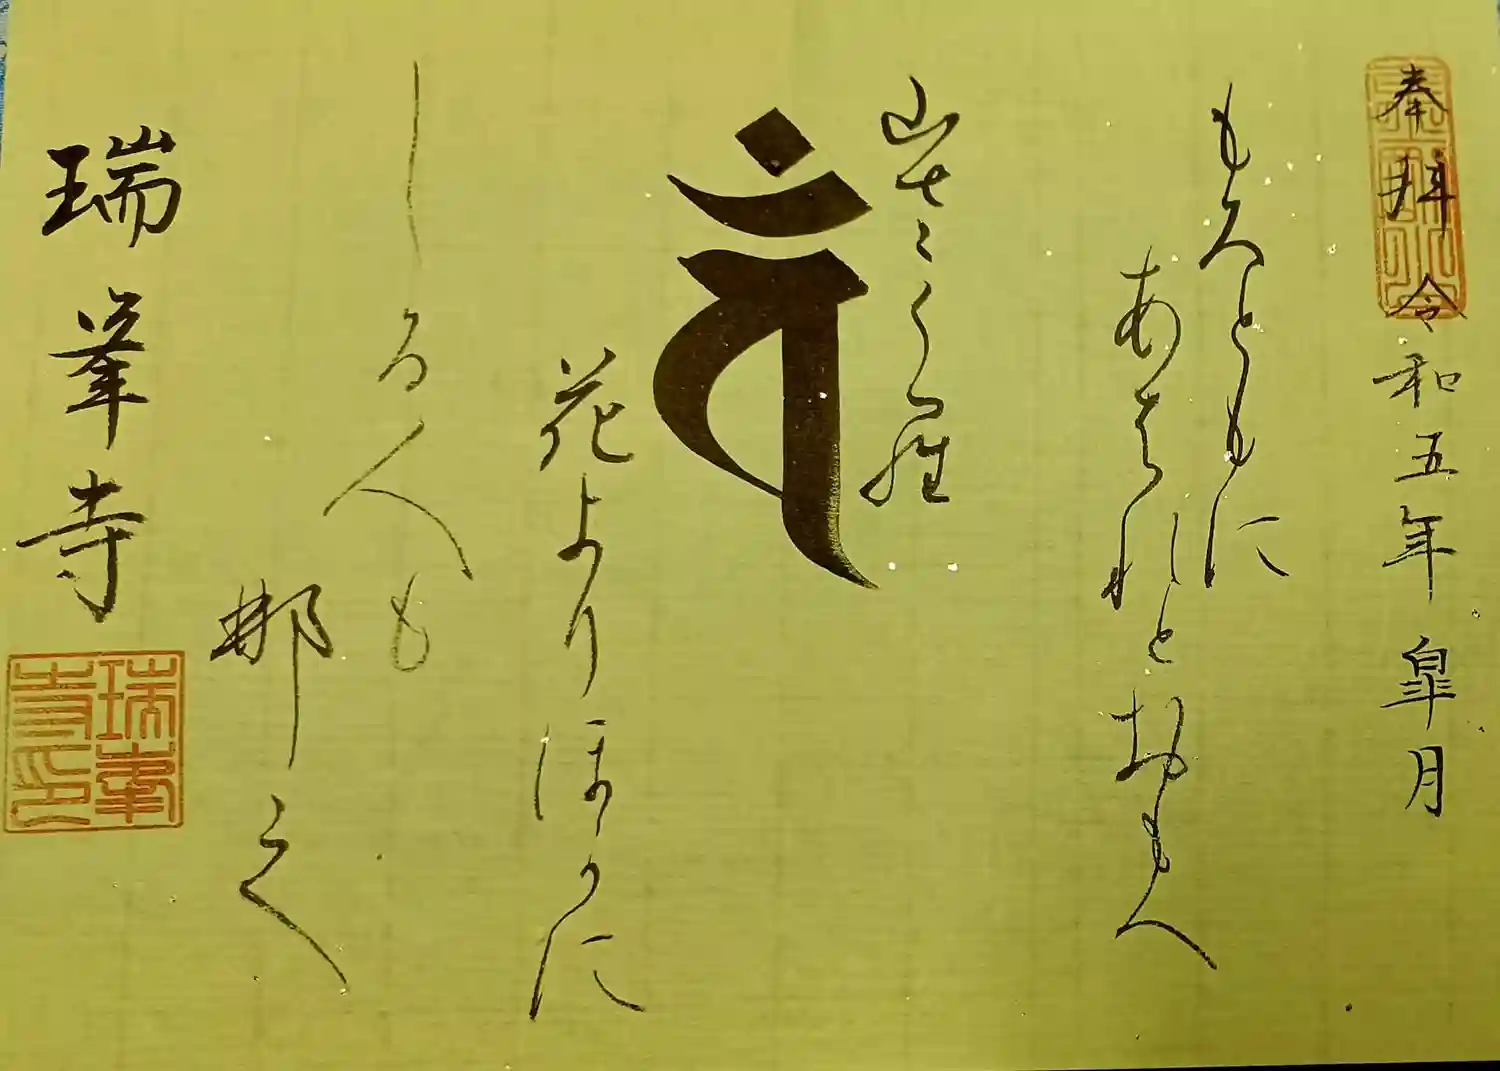 奉拝 令和五年 皐月
もろともに
あはれとおもへ
山さく羅
𑖪𑖽
花よりほかに
しる人も
那之
瑞峯寺
瑞峯寺印